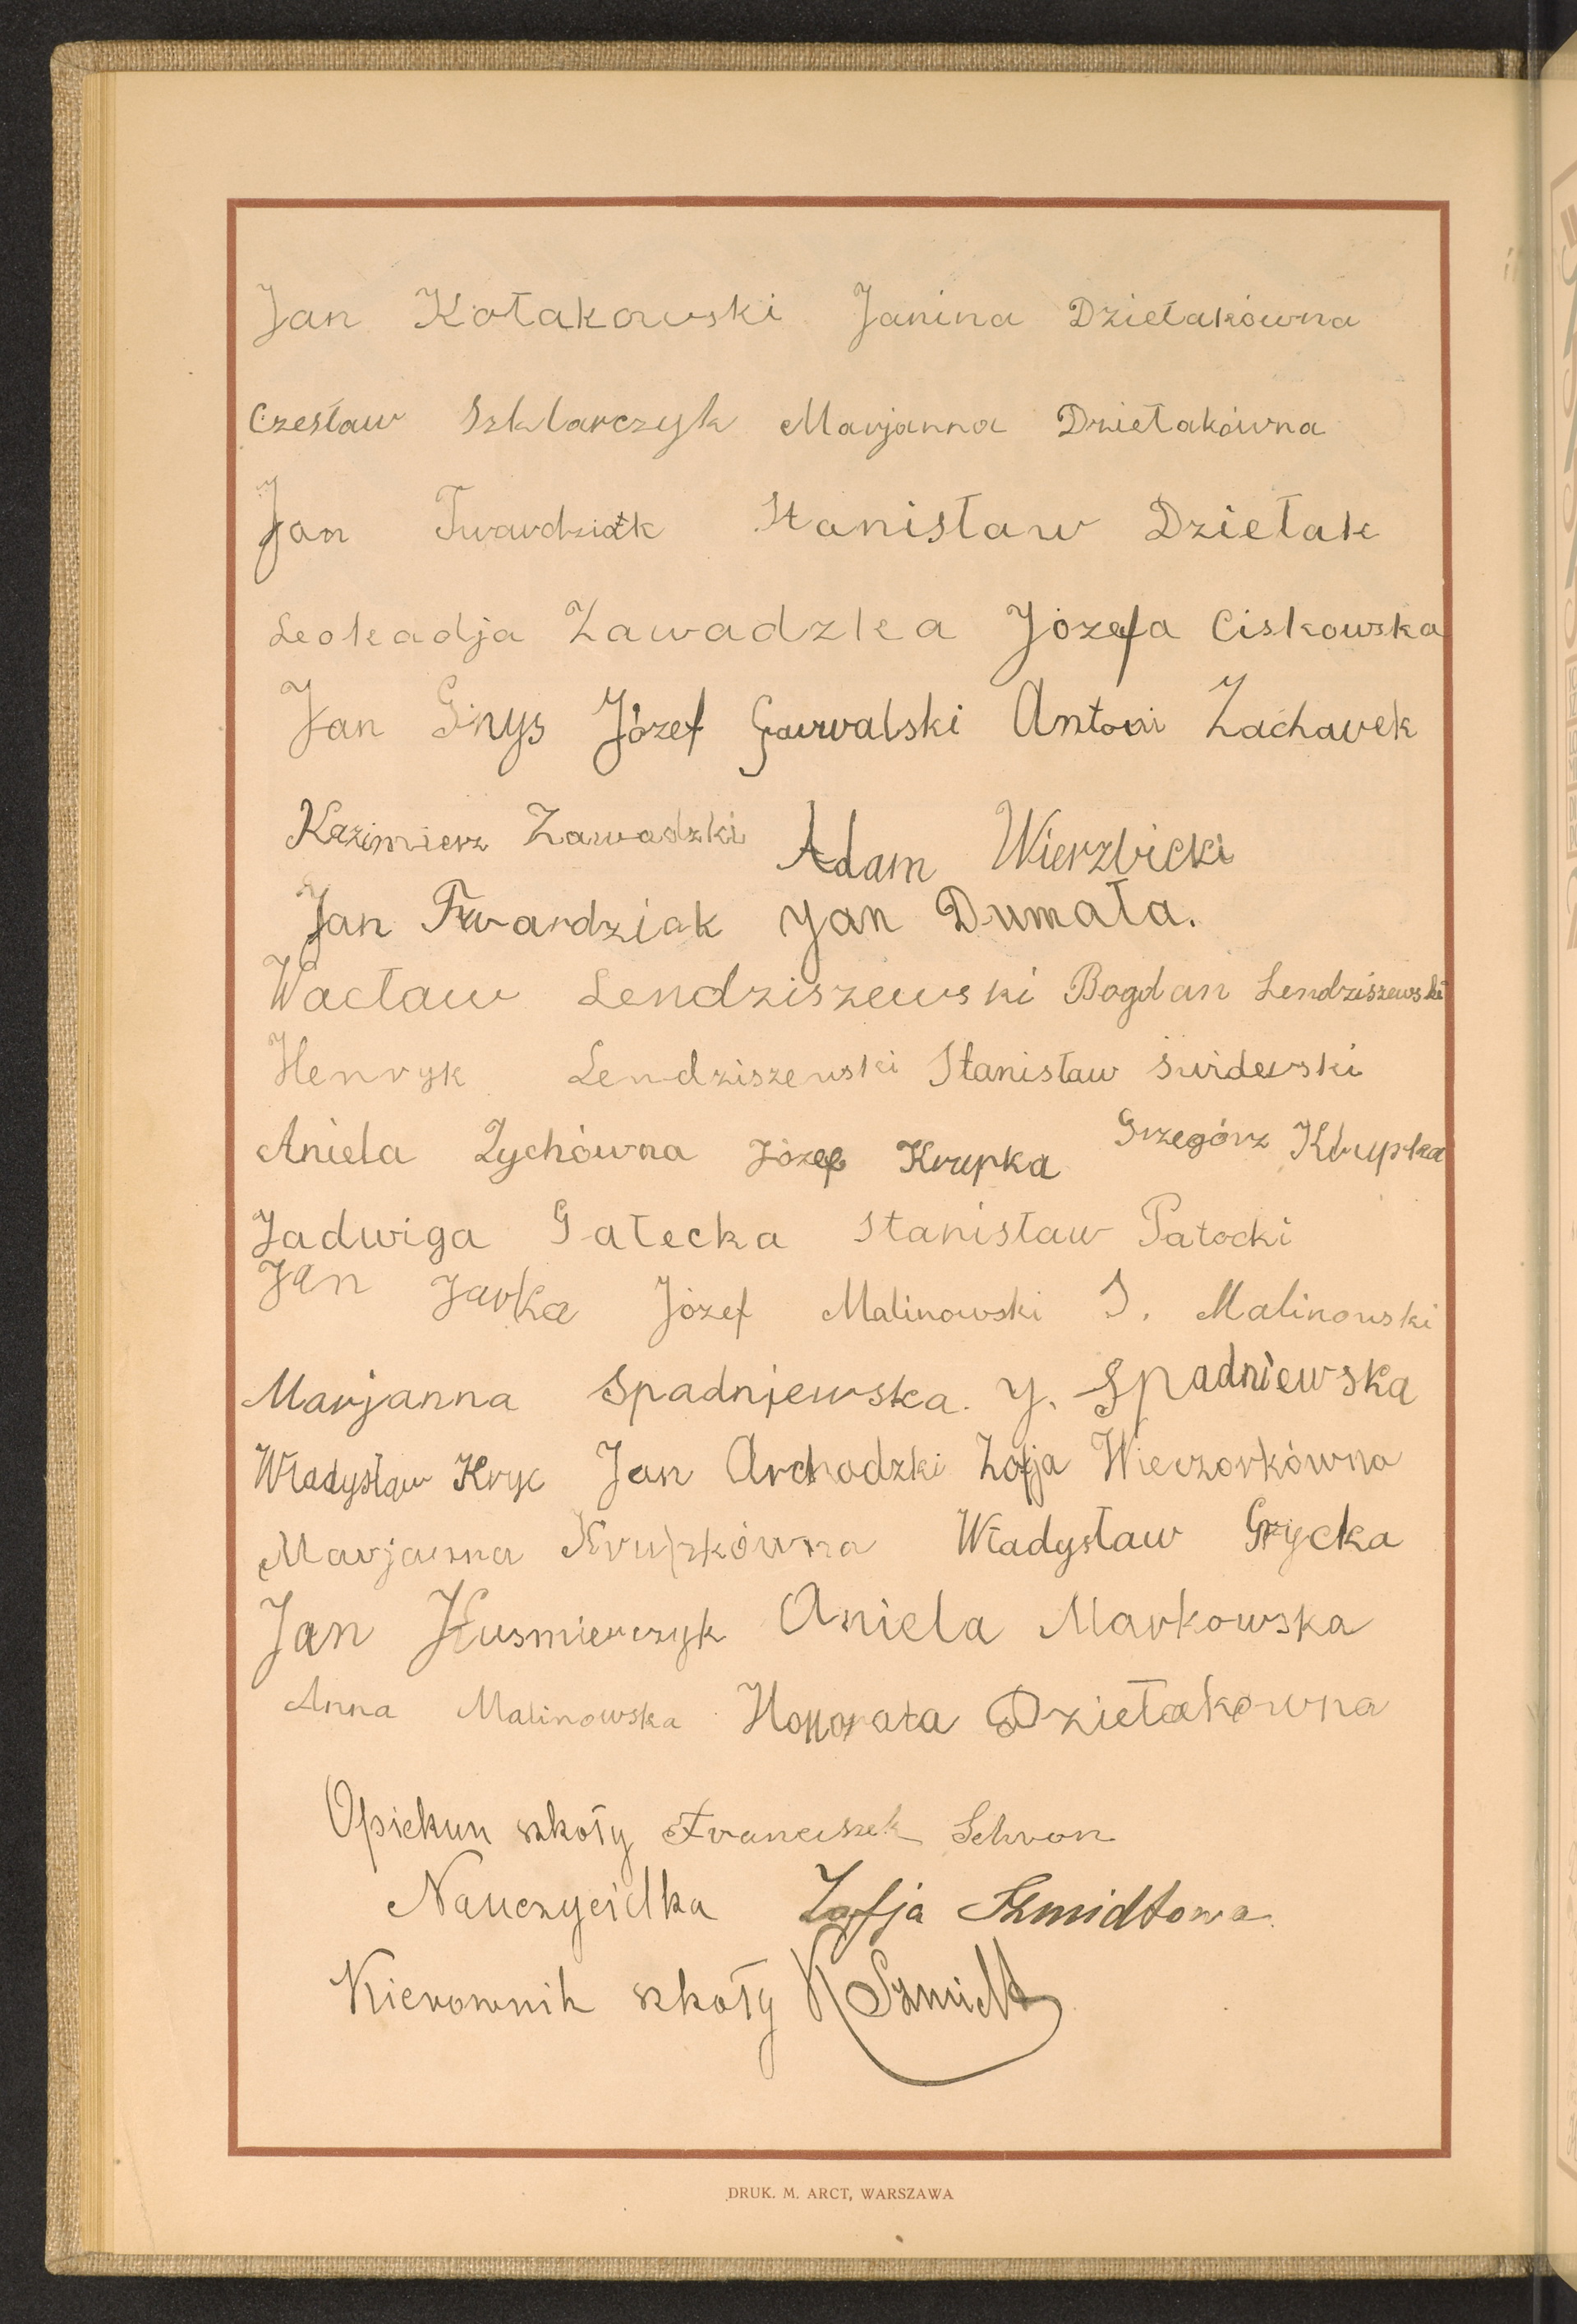 Jan Kołakowski Janina Dziełakówna
Czesław Szklarczyk Marjanna Dziełakówna
Jan Twardziak Stanisław Dziełak
Leokadja Zawadzka Józefa Ciskowska
Jan Gnys Józef Gawalski Antoni Zacharek
Kazimierz Zawadzki Adam Wierzbicki
Jan Twardziak Jan Dumała.
Wacław Lendziszewski Bogdan Lendziszewski
Henryk Lendziszewski Stanisław Świderski
Aniela Zychówna Józef Krupka Grzegórz Krupka
Jadwiga Gałecka Stanisław Patocki
Jan Jarka Józef Malinowski S. Malinowski
Marjanna Spadniewska. J. Spadniewska
Władysław Kryc Jan Archadzki Zofja Wieczorkówna
Marjanna Krupkówna Władysław Grycka
Jan Kusmierczyk Aniela Markowska
Anna Malinowska Honorata Dziełakowna
Opiekun szkoły Franciszek Schron
Nauczycielka Zofja Szmidtowa
Kierownik szkoły K Szmidt
DRUK. M. ARCT, WARSZAWA